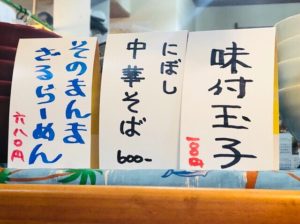 味付玉子
100円
にぼし
中華そば
600-
そのまんま
ざるらーめん
六八〇円